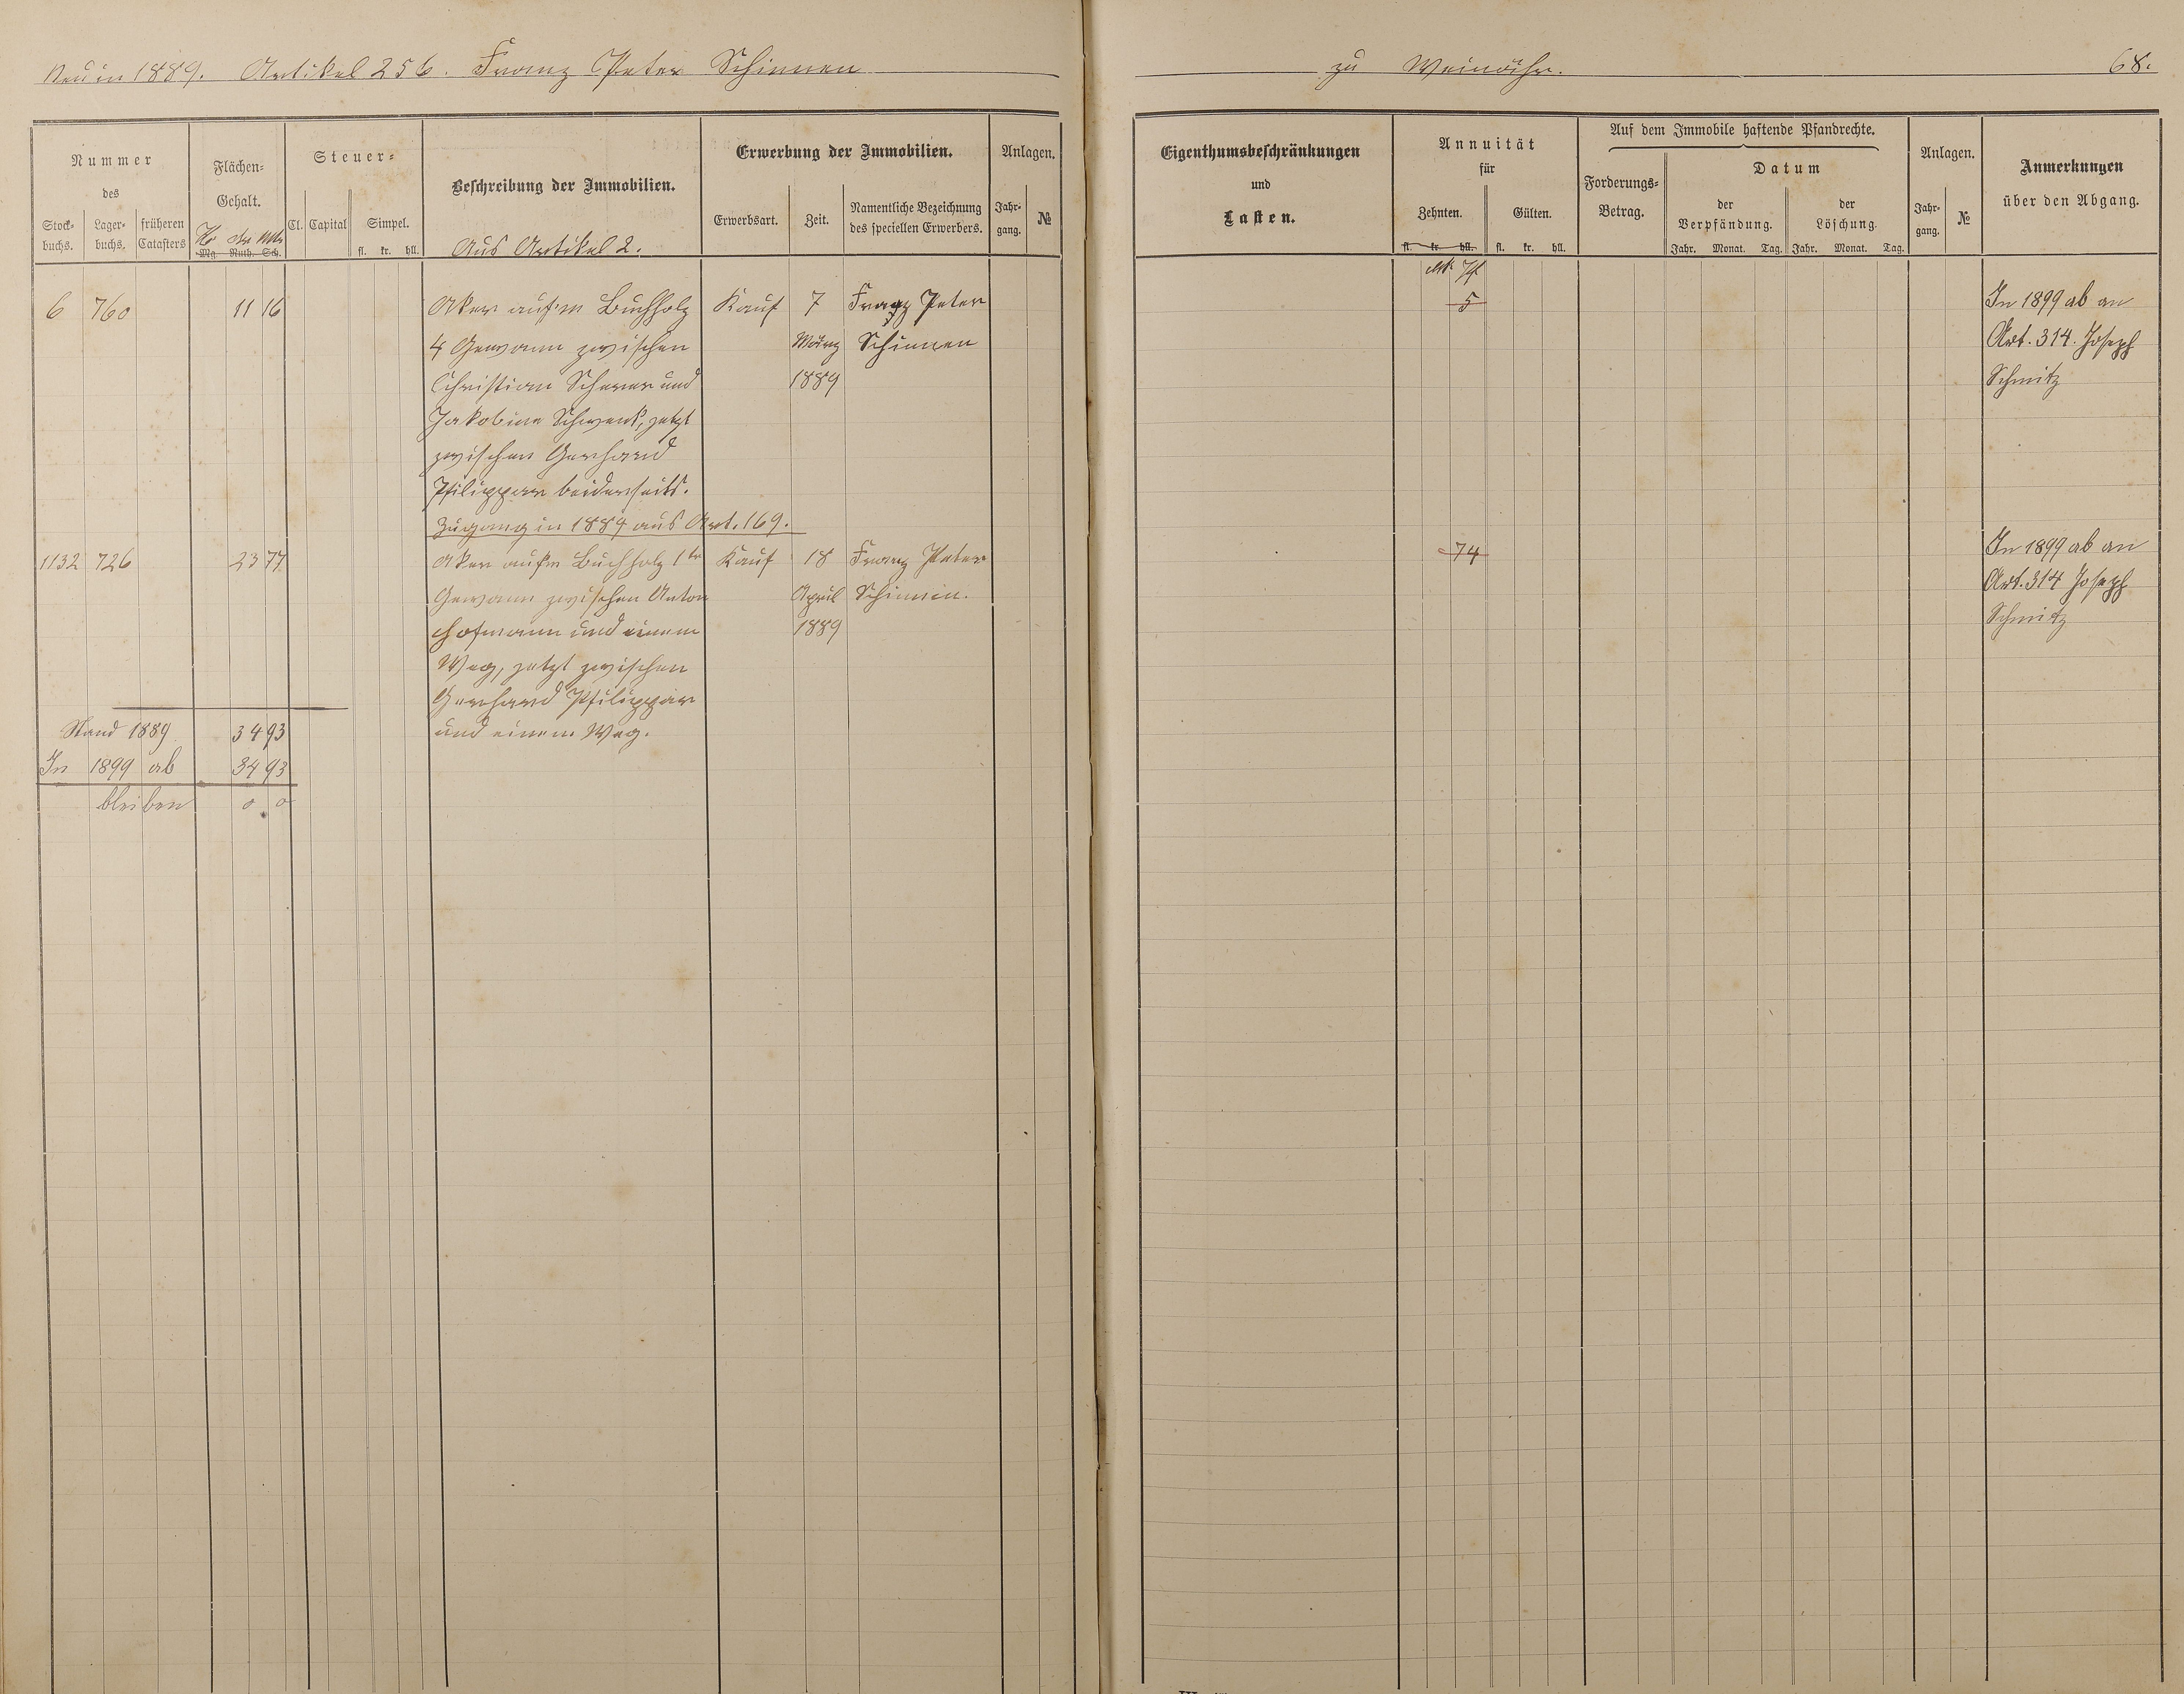 Neu in 1889. Artikel 256. Franz Peter Schinnen
zu Weinähr. 68.
Nummer
des
Stock-
buchs.
Lager-
buchs.
früheren
Catasters
Flächen-
Gehalt.
Mg. Ruth. Sch.
Steuer-
Cl. Capital Simpel.
fl. kr. hll.
Beschreibung der Immobilien.
Aus Artikel 2.
Erwerbung der Immobilien.
Erwerbsart. Zeit. Namentliche Bezeichnung
des speciellen Erwerbers.
Anlagen.
Jahr-
gang.
№
Eigenthumsbeschränkungen
und
Lasten.
Annuität
für
Zehnten. Gülten.
fl. kr. hll. fl. kr. hll.
Auf dem Immobile haftende Pfandrechte.
Forderungs-
Betrag.
Datum
der
Verpfändung.
der
Löschung.
Jahr. Monat. Tag. Jahr. Monat. Tag.
Anlagen.
Jahr-
gang.
№
Anmerkungen
über den Abgang.
6 760 11 16 Aker auf'm Buchholz Kauf 7 Franz Peter 5 In 1899 ab an
4 Gewann zwischen März Schinnen Art. 314. Joseph
Christian Scherer und 1889 Schmitz
Jakobine Schwenk, jetzt
zwischen Gerhard
Philippar beiderseits.
Zugang in 1889 aus Art. 169.
1132 726 23 77 Aker aufm Buchholz 1te Kauf 18 Franz Peter 74 In 1899 ab an
Gewann zwischen Anton April Schinnen. Art. 314 Joseph
Hofmann und einem 1889 Schmitz
Weg, jetzt zwischen
Gerhard Philippar
und einem Weg.
Stand 1889 34 93
In 1899 ab 34 93
bleiben 0 0